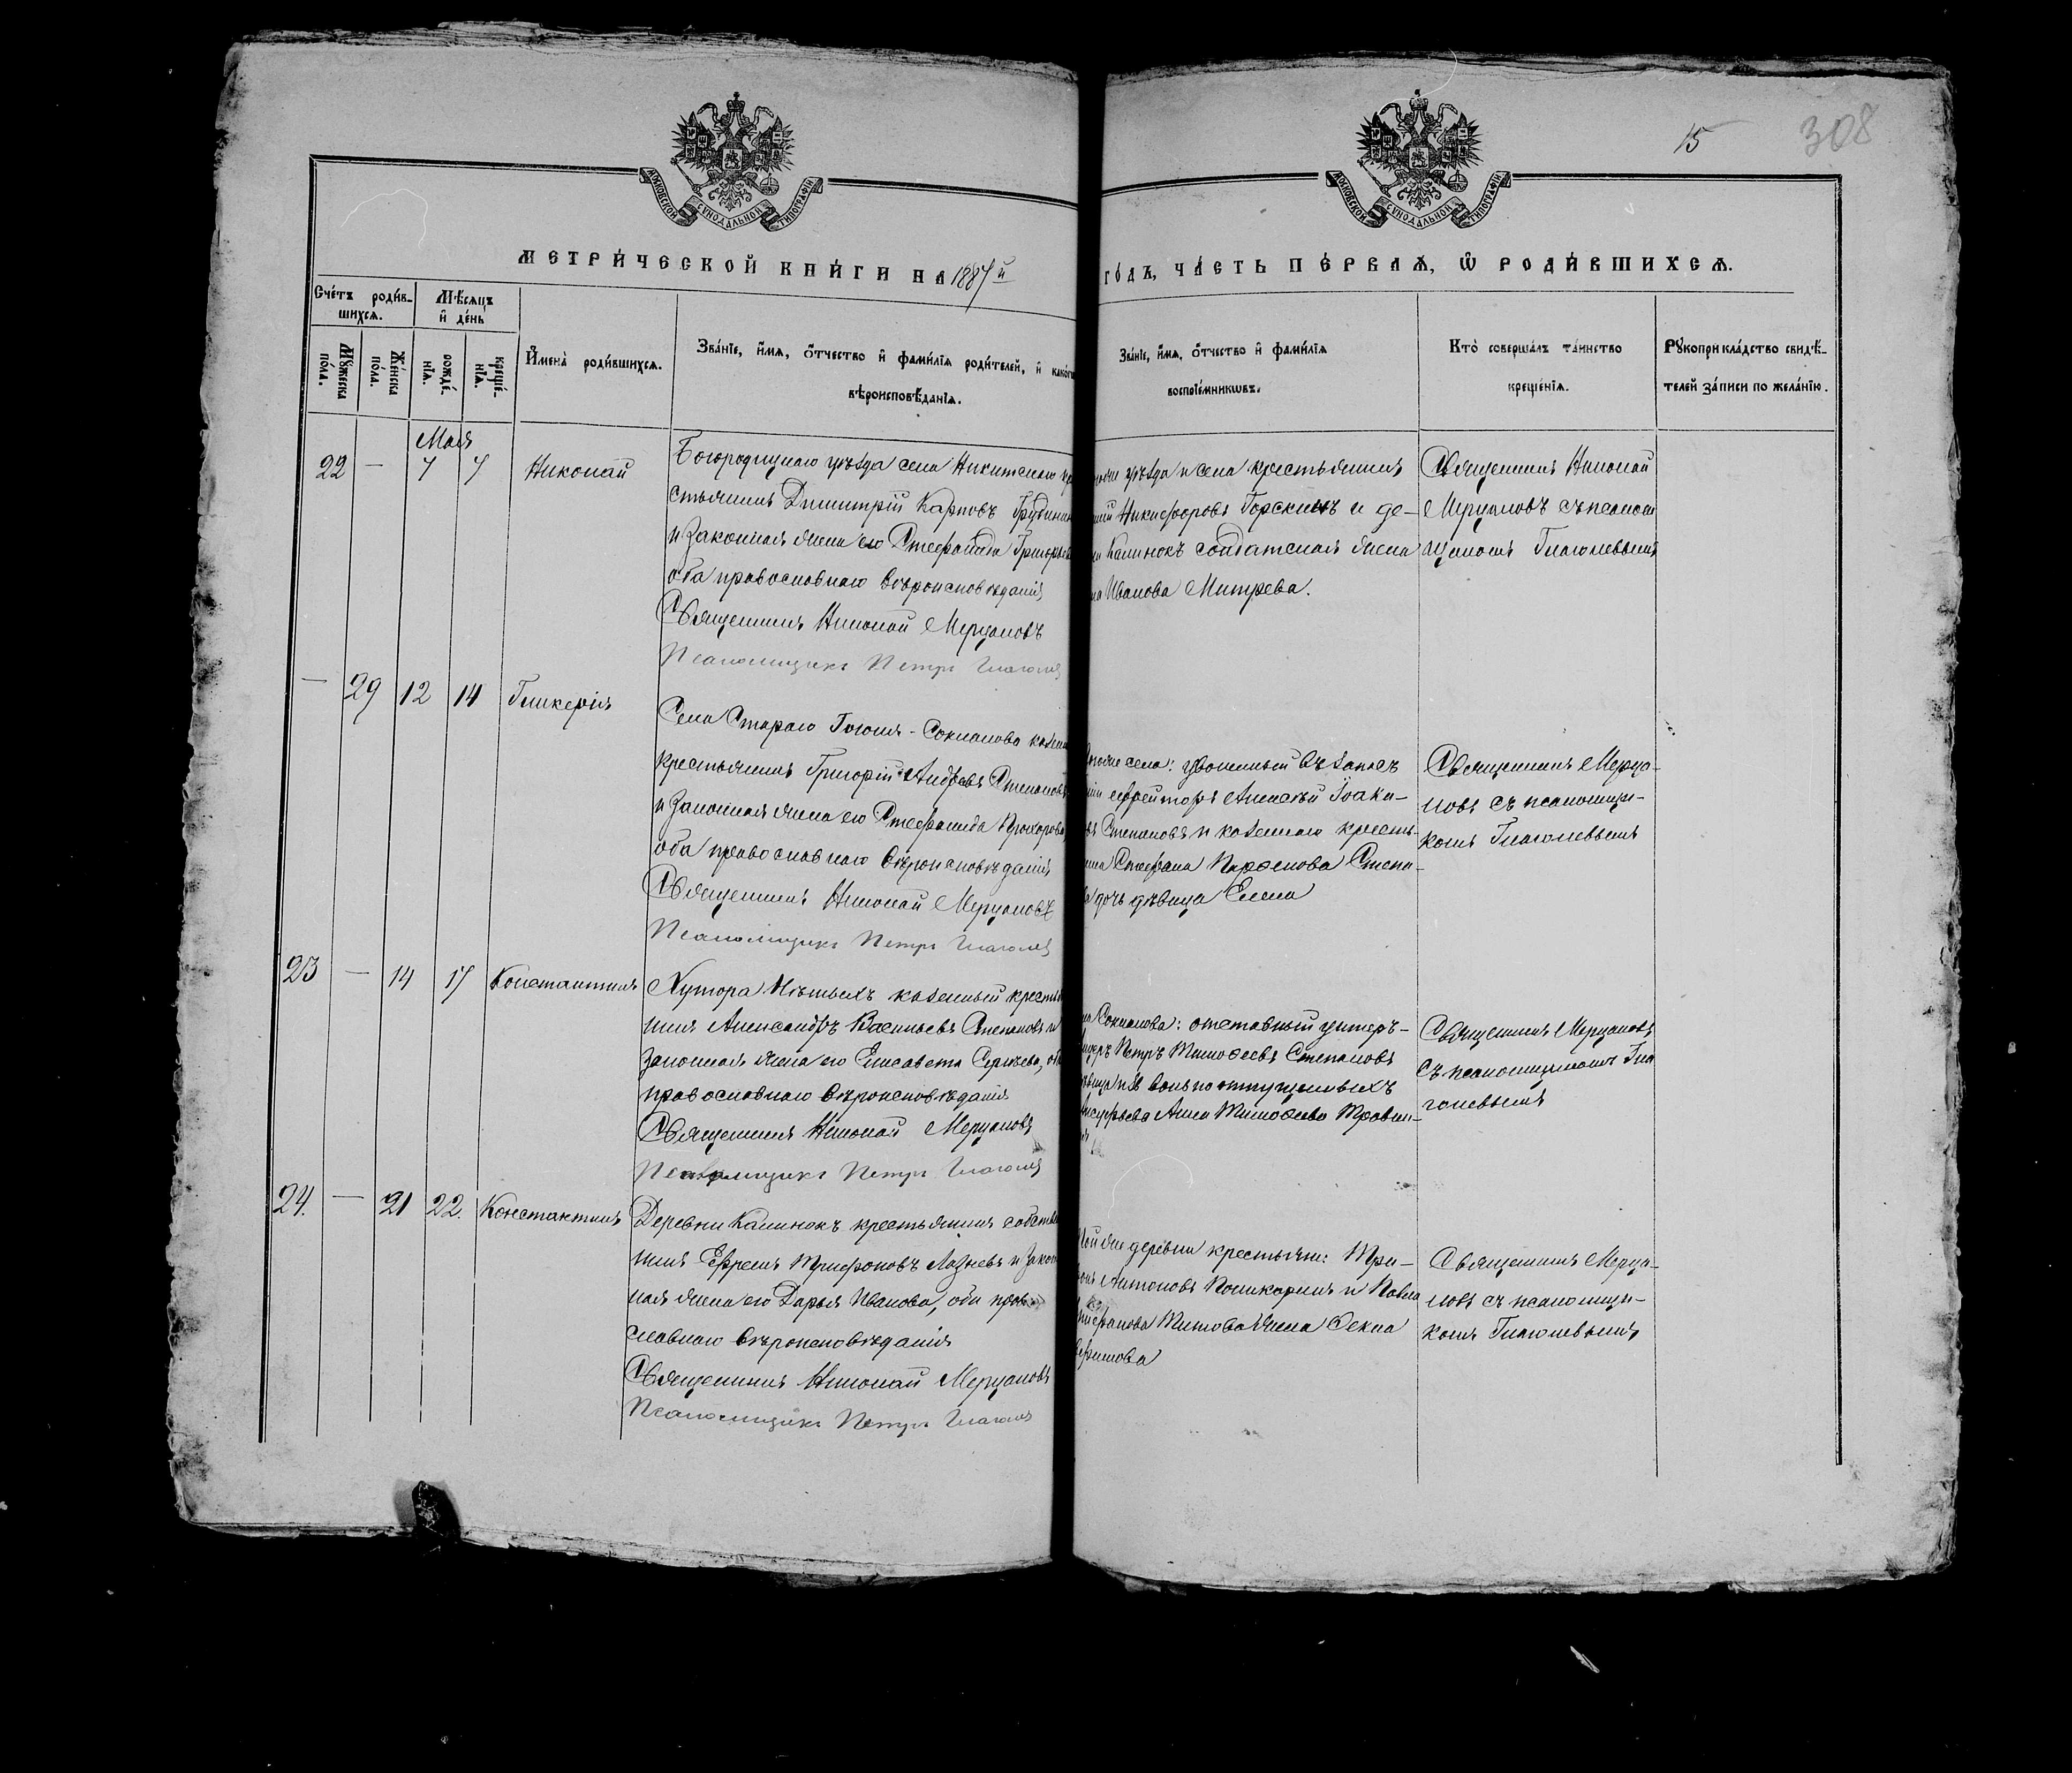 МОСКОВСКОЙ СѴНОДАЛЬНОЙ ТИПОГРАФІИ
МОСКОВСКОЙ СѴНОДАЛЬНОЙ ТИПОГРАФІИ
15
308
МЕТРИ́ЧЕСКОЙ КНИ́ГИ НА 1887й
ГО́ДЪ, ЧА́СТЬ ПЕ́РВАѦ, Ѡ҆ РОДИ́ВШИХСѦ.
Сче́тъ роди́в-
шихсѧ.
Мѣ́сѧцъ
и҆ де́нь
Мꙋ́жеска
по́ла.
Же́нска
по́ла.
рожде́-
нїѧ.
креще́-
нїѧ.
И҆мена̀ роди́вшихсѧ.
Зва́нїе, и҆́мѧ, ѻ҆́тчество и҆ фами́лїѧ роди́телей, и҆ како́гѡ
вѣроисповѣ́данїѧ.
Зва́нїе, и҆́мѧ, ѻ҆́тчество и҆ фами́лїѧ
воспрїе́мникѡвъ.
Кто̀ соверша́лъ та́инство
креще́нїѧ.
Рꙋкоприкла́дство свидѣ́-
телей за́писи по жела́нїю.
Мая
22 — 7 7 Николай
Богородицкаго уѣзда села Никитскаго кре
стьянинъ Димитрій Карповъ Грубинин
и законная жена его Стефанида Григорьев
оба православнаго вѣроисповѣданія
Священникъ Николай Мерцаловъ
Псаломщикъ Петръ Глаголев
уѣзда и села крестьянинъ
Никифоровъ Горскинъ и де-
Калинокъ солдатская жена
Иванова Митрева.
Священникъ Николай
Мерцаловъ съ псалом
щикомъ Глаголевымъ
— 29 12 14 Гликерія
Села Стараго Гоголя-Соклаково казен
крестьянинъ Григорій Андреевъ Степановъ
и законная жена его Стефанида Прохорова
оба православнаго вѣроисповѣданія
Священникъ Николай Мерцаловъ
Псаломщикъ Петръ Глаголев
села: уволенный въ запасъ
ефрейторъ Алексѣй Іоаки-
Степановъ и казеннаго кресть-
Стефана Парѳенова Степа-
дочь дѣвица Елена
Священникъ Мерца-
ловъ съ псаломщи-
комъ Глаголевымъ
23 — 14 17 Константинъ
Хутора казенный кресть
нинъ Александръ Васильевъ Степановъ и
законная жена его Елисавета Сергѣева, оба
православнаго вѣроисповѣданія
Священникъ Николай Мерцаловъ
Псаломщикъ Петръ Глаголев
Соклакова: отставный унтеръ-
Петръ Тимоѳеевъ Степановъ
вольноотпущенныхъ
Анна Тимоѳеева
Священникъ Мерцаловъ
съ псаломщикомъ Гла
голевымъ
24. — 21 22. Константинъ
Деревни Калинокъ крестьянинъ собствен
никъ Ефремъ Трифоновъ Лазневъ и закон
ная жена его Дарья Иванова, оба право
славнаго вѣроисповѣданія
Священникъ Николай Мерцаловъ
Псаломщикъ Петръ Глаголев
той же деревни крестьяне: Три-
Антоновъ Поликаринъ и Павла
Титова жена Ѳекла
Священникъ Мерца-
ловъ съ псаломщи-
комъ Глаголевымъ